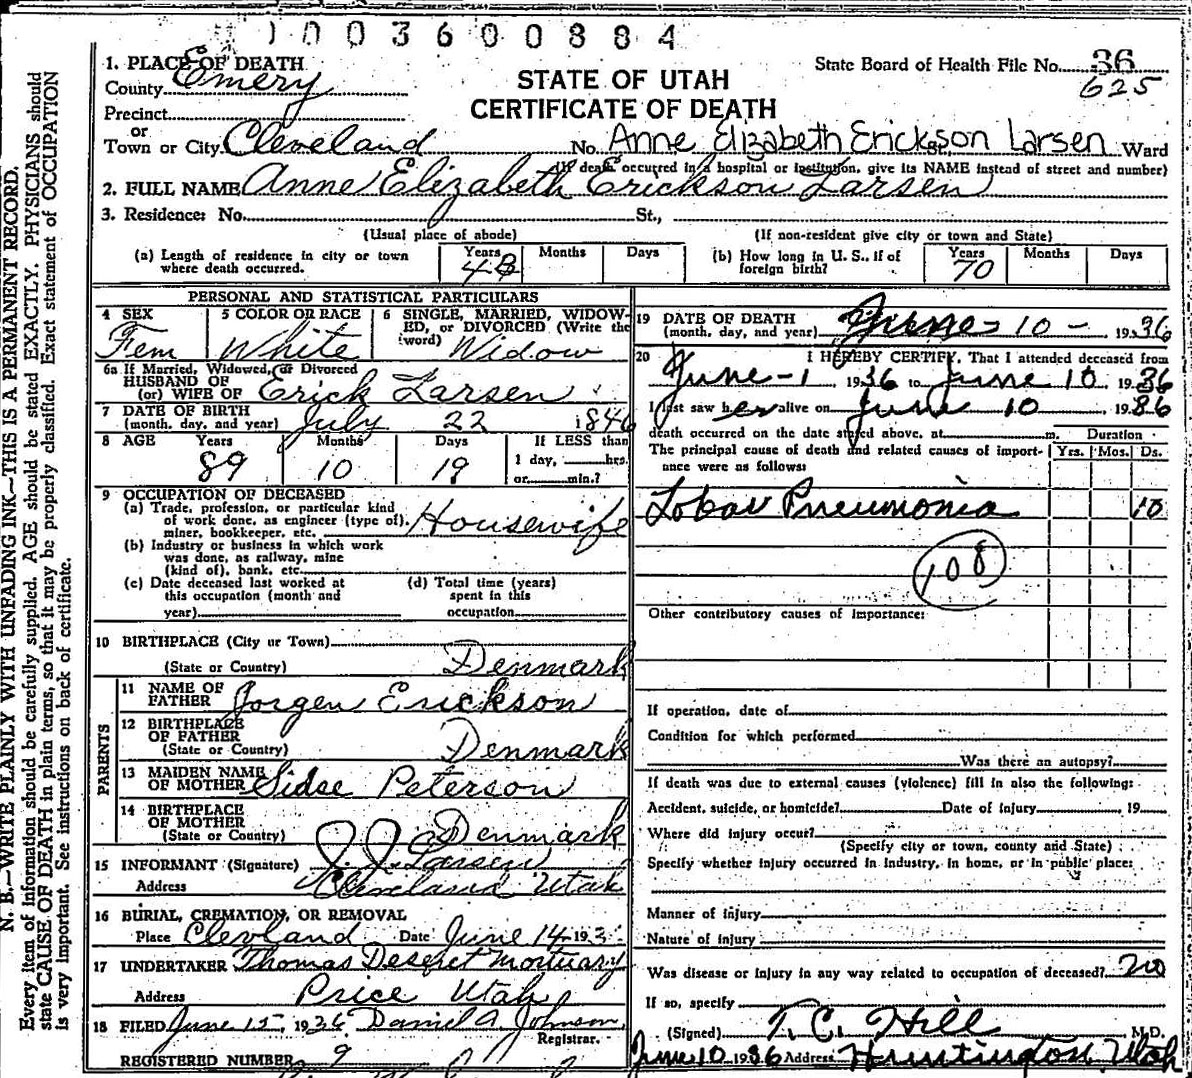 1003600884
1. PLACE OF DEATH
County Emery
STATE OF UTAH
State Board of Health File No. 36
625
Precinct
CERTIFICATE OF DEATH
or
Town or City Cleveland No. Anne Elizabeth Erickson Larsen St., Ward
(If death occurred in a hospital or institution, give its NAME instead of street and number)
2. FULL NAME Anne Elizabeth Erickson Larsen
3. Residence: No. St.,
(Usual place of abode) (If non-resident give city or town and State)
(a) Length of residence in city or town where death occurred. Years 48 Months Days
(b) How long in U. S., if of foreign birth? Years 70 Months Days
PERSONAL AND STATISTICAL PARTICULARS
4 SEX Fem
5 COLOR OR RACE White
6 SINGLE, MARRIED, WIDOWED, or DIVORCED (Write the word) Widow
6a If Married, Widowed, or Divorced
HUSBAND OF
(or) WIFE OF Erick Larsen
7 DATE OF BIRTH
(month, day, and year) July 22 1846
8 AGE Years Months Days If LESS than
89 10 19 1 day, hrs.
or min.?
9 OCCUPATION OF DECEASED
(a) Trade, profession, or particular kind
of work done, as engineer (type of),
miner, bookkeeper, etc. Housewife
(b) Industry or business in which work
was done, as railway, mine
(kind of), bank, etc.
(c) Date deceased last worked at
this occupation (month and
year)
(d) Total time (years)
spent in this
occupation
10 BIRTHPLACE (City or Town)
(State or Country) Denmark
PARENTS
11 NAME OF
FATHER Jorgen Erickson
12 BIRTHPLACE
OF FATHER
(State or Country) Denmark
13 MAIDEN NAME
OF MOTHER Sidse Peterson
14 BIRTHPLACE
OF MOTHER
(State or Country) Denmark
15 INFORMANT (Signature) J. J. Larsen
Address Cleveland Utah
16 BURIAL, CREMATION, OR REMOVAL
Place Clevland Date June 14 193
17 UNDERTAKER Thomas Deseret Mortuary
Address Price Utah
18 FILED June 15, 1936 Daniel A. Johnson
Registrar.
REGISTERED NUMBER 9
19 DATE OF DEATH
(month, day, and year) June 10 - 1936
20 I HEREBY CERTIFY, That I attended deceased from
June - 1, 1936 to June 10, 1936
I last saw her alive on June 10, 1936
death occurred on the date stated above, at m.
Duration
The principal cause of death and related causes of importance were as follows:
Yrs. Mos. Ds.
Lobar Pneumonia 10
108
Other contributory causes of importance:
If operation, date of
Condition for which performed
Was there an autopsy?
If death was due to external causes (violence) fill in also the following:
Accident, suicide, or homicide? Date of injury 19
Where did injury occur?
(Specify city or town, county and State)
Specify whether injury occurred in industry, in home, or in public place:
Manner of injury
Nature of injury
Was disease or injury in any way related to occupation of deceased? no
If so, specify
(Signed) T. C. Hill M.D.
June 10 1936 Address Huntington, Utah
N. B.—WRITE PLAINLY WITH UNFADING INK—THIS IS A PERMANENT RECORD.
Every item of information should be carefully supplied. AGE should be stated EXACTLY. PHYSICIANS should
state CAUSE OF DEATH in plain terms, so that it may be properly classified. Exact statement of OCCUPATION
is very important. See instructions on back of certificate.